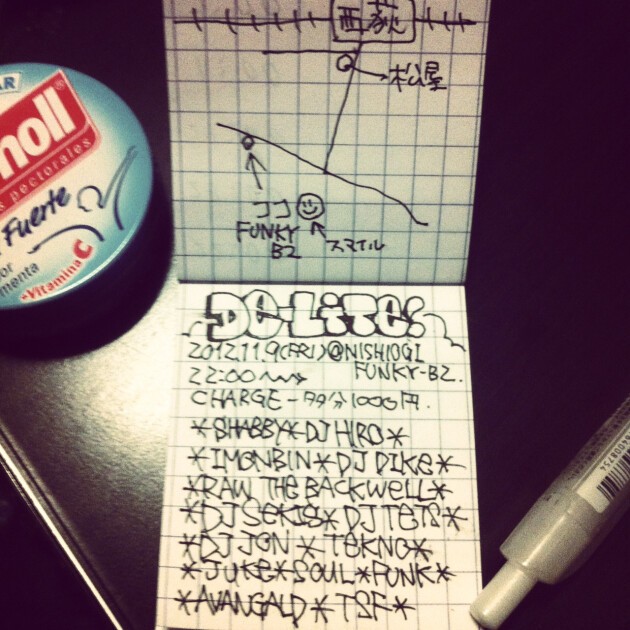 西荻
松屋
ココ
FUNKY
B2
スマイル
DE-LiTE!
2012.11.9(FRI)@NISHIOGI
22:00〜 FUNKY-B2.
CHARGE - 1000円.
*SHABBY*DJ HIRO*
*IMONBIN*DJ DIKE*
*RAW THE BACKWELL*
*DJ SEKIS*DJ TETS*
*DJ JON*TEKNO*
*JUKE*SOUL*FUNK*
*AVANGALD*TSF*
AR
noll
pectorales
Fuerte
or
menta
+Vitamina C